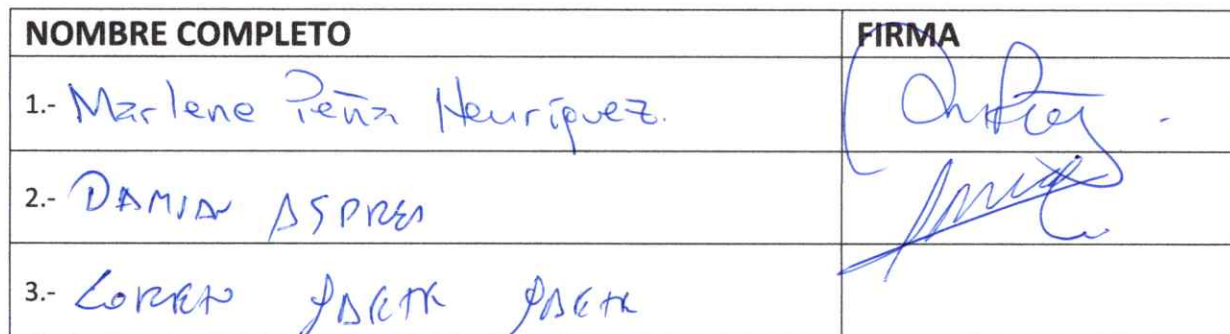 NOMBRE COMPLETO FIRMA
1.- Marlene Peña Henríquez.
2.- DAMIAN ASPREA
3.- LOREN